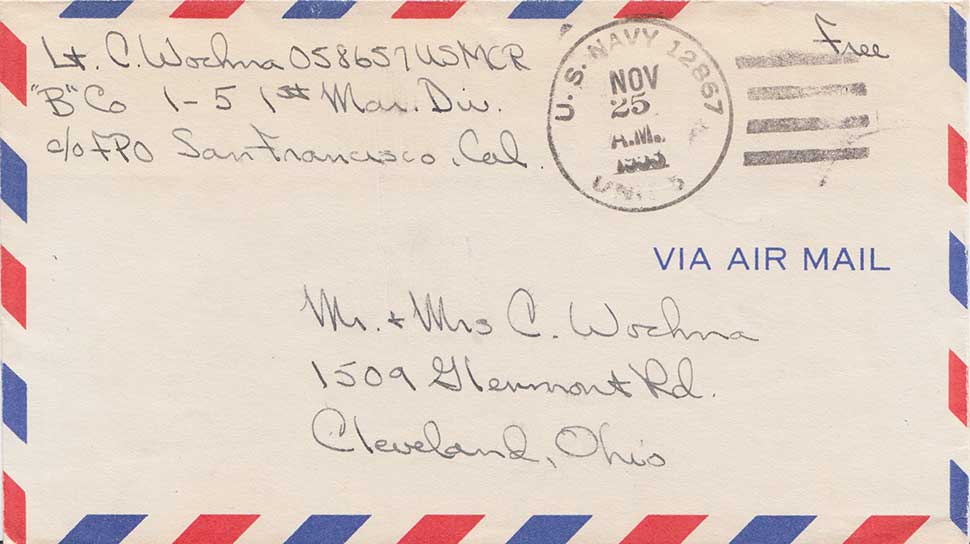 Lt. C. Wochna 058657 USMCR
"B" Co 1-5 1st Mar. Div.
c/o FPO San Francisco, Cal.
Free
U.S. NAVY 12867
NOV
25
A.M.
VIA AIR MAIL
Mr. + Mrs C. Wochna
1509 Glenmont Rd.
Cleveland, Ohio